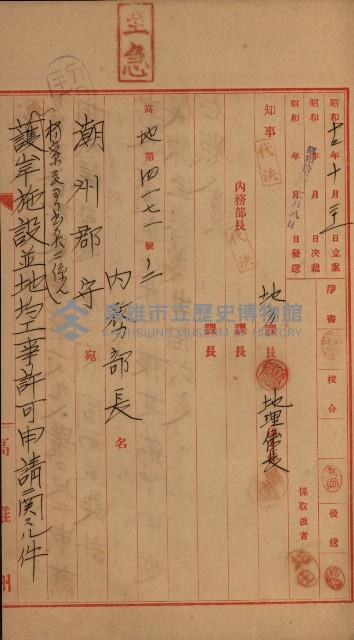 至急
昭和十三年十月三日立案
昭和 年 月 日決裁
昭和 年 月八日發送
淨書
校合
發送
知事 代決
內務部長 代決
地方課長
課長
課長
地理係長
係取扱者
高地第四一七一號ノ二
內務部長 名
潮州郡守 宛
護岸施設並地均工事許可申請ニ関スル件
高雄州
高雄市立歷史博物館
KAOHSIUNG MUSEUM OF HISTORY